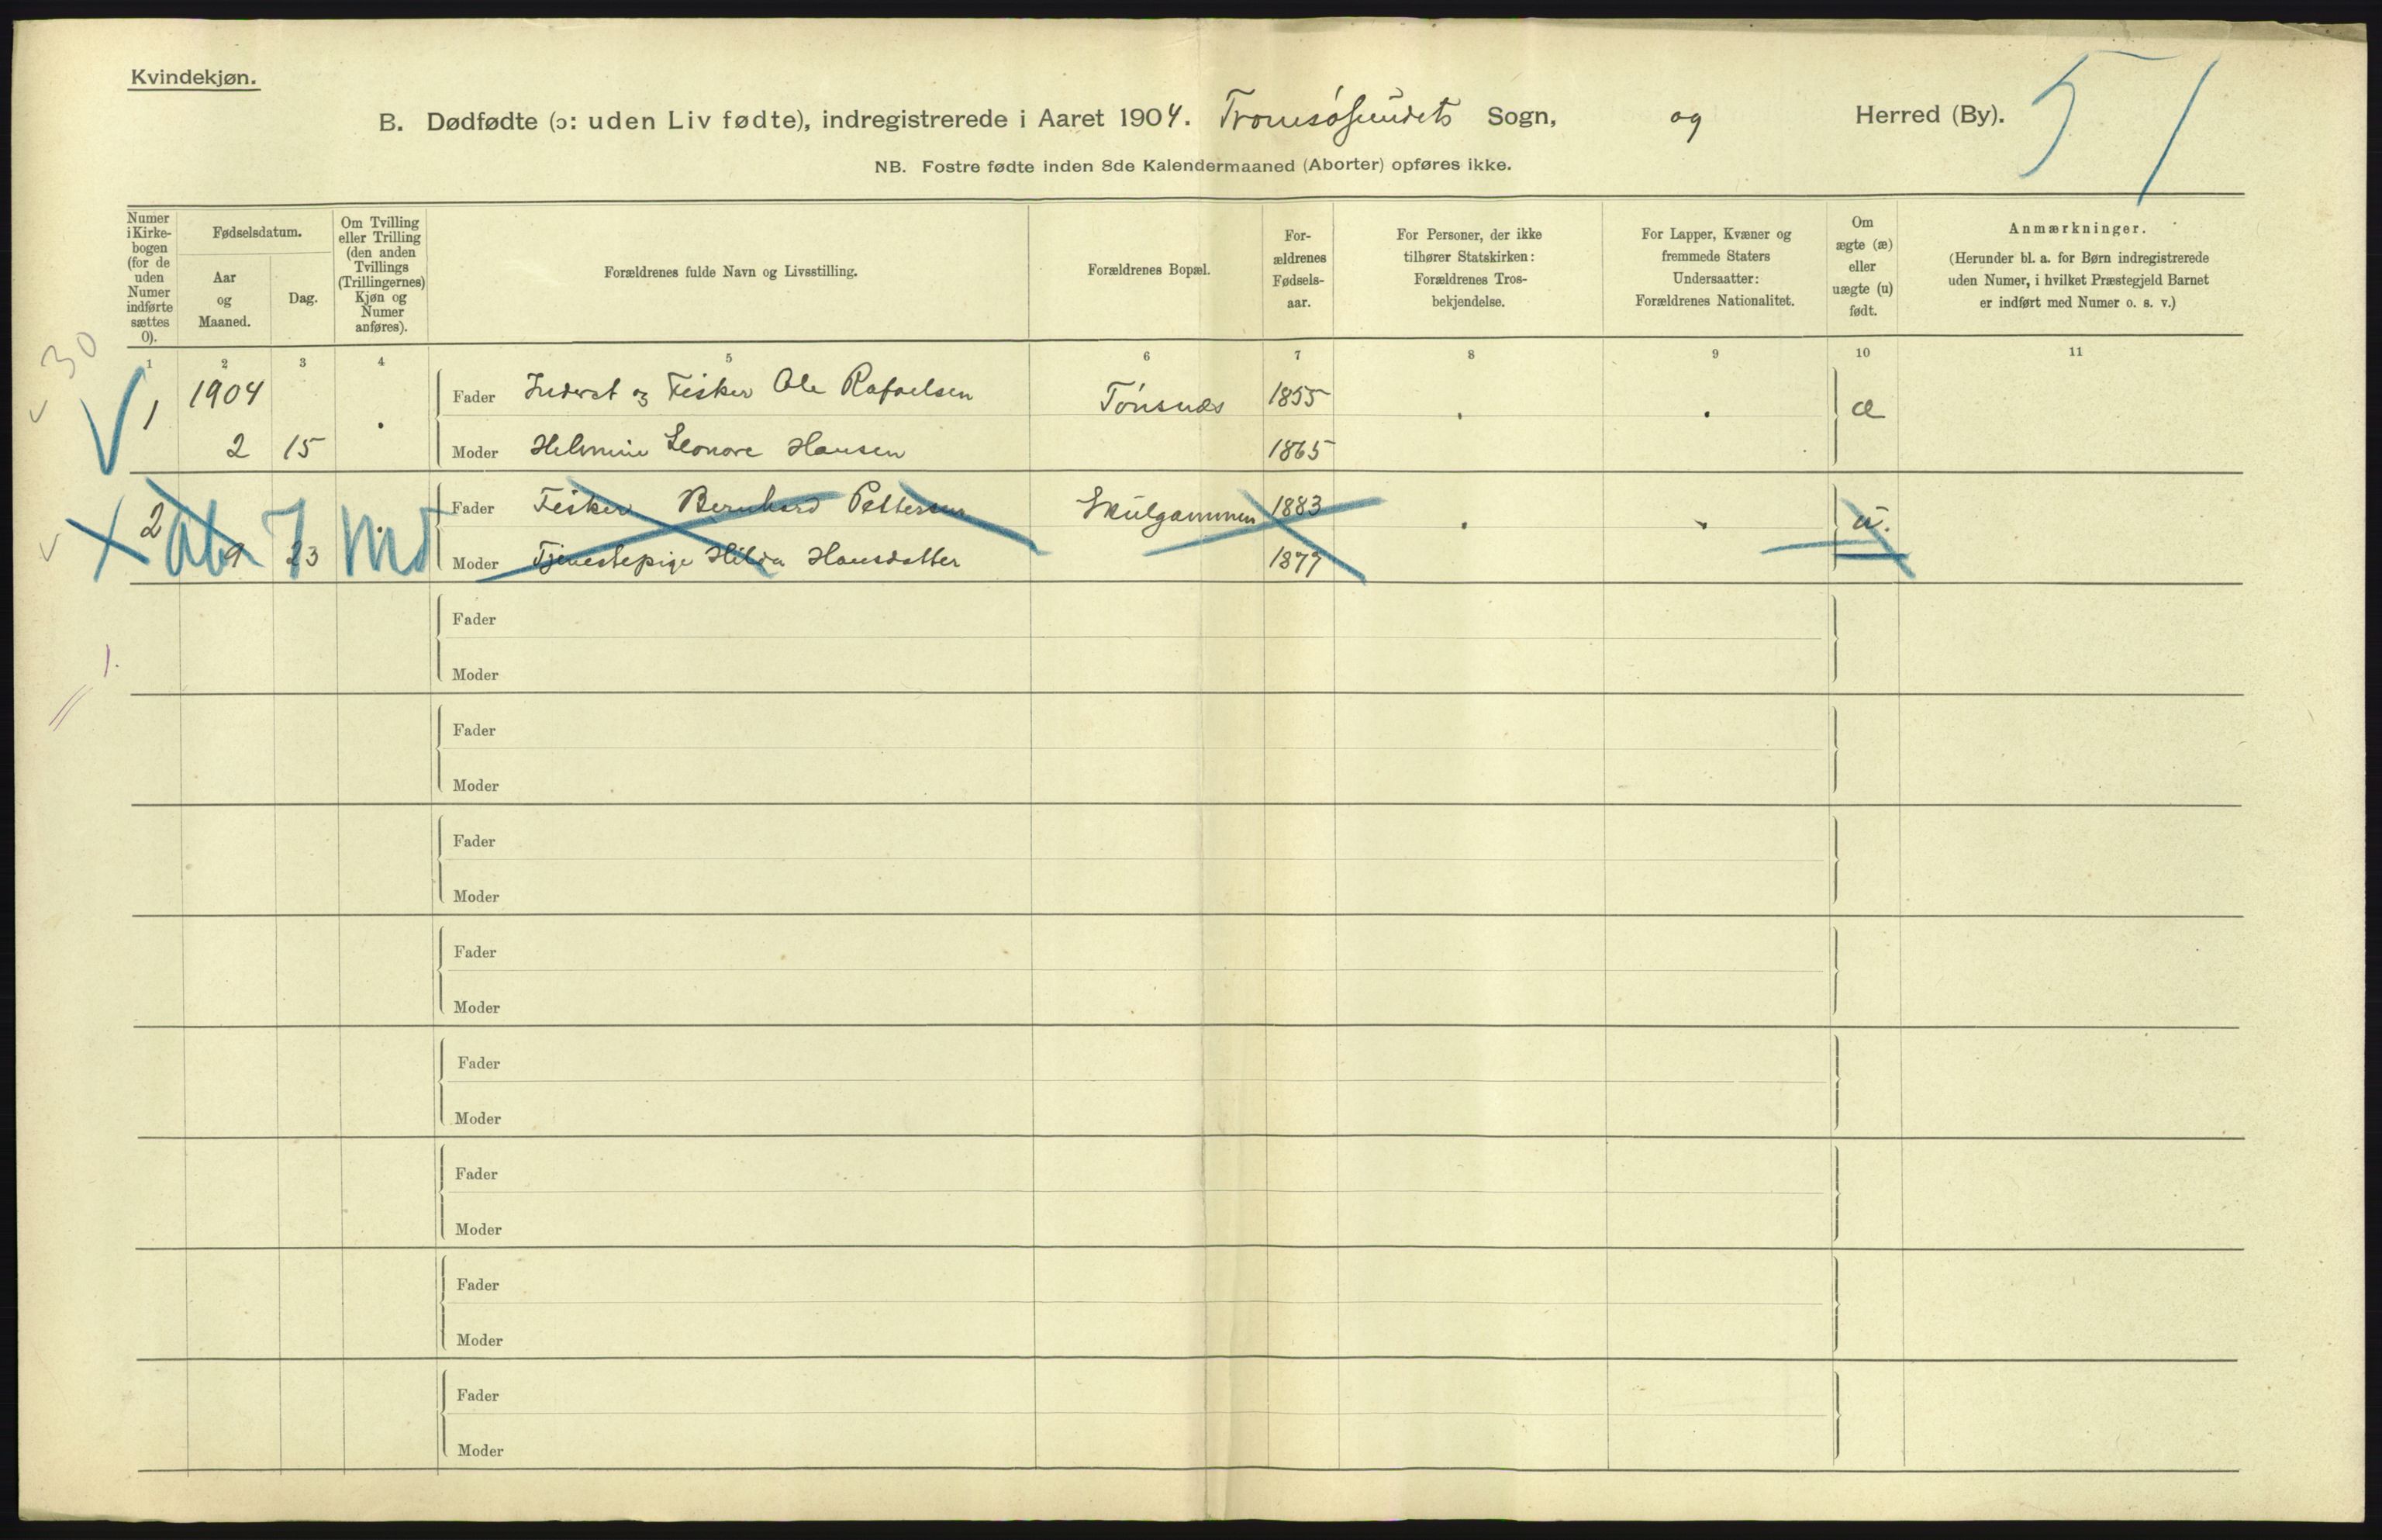 Kvindekjøn.
B. Dødfødte (ɔ: uden Liv fødte), indregistrerede i Aaret 1904. Tromsøsundets Sogn, og Herred (By).
51
NB. Fostre fødte inden 8de Kalendermaaned (Aborter) opføres ikke.
Numer i Kirke-bogen (for de uden Numer indførte sættes 0).
Fødselsdatum.
Aar og Maaned.
Dag.
Om Tvilling eller Trilling (den anden Tvillings (Trillingernes) Kjøn og Numer anføres).
Forældrenes fulde Navn og Livsstilling.
Forældrenes Bopæl.
For-ældrenes Fødsels-aar.
For Personer, der ikke tilhører Statskirken: Forældrenes Tros-bekjendelse.
For Lapper, Kvæner og fremmede Staters Undersaatter: Forældrenes Nationalitet.
Om ægte (æ) eller uægte (u) født.
Anmærkninger.
(Herunder bl. a. for Børn indregistrerede uden Numer, i hvilket Præstegjeld Barnet er indført med Numer o. s. v.)
1 2 3 4 5 6 7 8 9 10 11
30
1 1904 Fader Inderst og Fisker Ole Rafaelsen Tønsnæs 1855 æ
2 15 Moder Helmine Leonore Hansen 1865
2 Fader Fisker Bernhard Pettersen Skulgammen 1883 u.
Ab 7 Md
9 23 Moder Tjenestepige Hilda Hansdatter 1877
Fader
1.
Moder
Fader
Moder
Fader
Moder
Fader
Moder
Fader
Moder
Fader
Moder
Fader
Moder
Fader
Moder